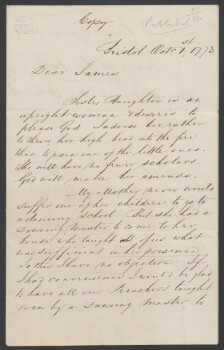 Copy
Publish'd
Bristol Octr. 1st. 1773
Dear James
Sister Haughton is an
upright woman & desires to
please God. I advise her rather
to throw her high head into the fire
than to pain one of the little ones.
She will have no fewer scholars.
God will make her amends.
My Mother never would
suffer one of her children to go to
a dancing School. But she had a
dancing master to come to her
house who taught all of us what
was sufficient in her presence.
To this I have no objection. If
I had convenience I would be glad
to have all our Preachers taught
even by a dancing Master to